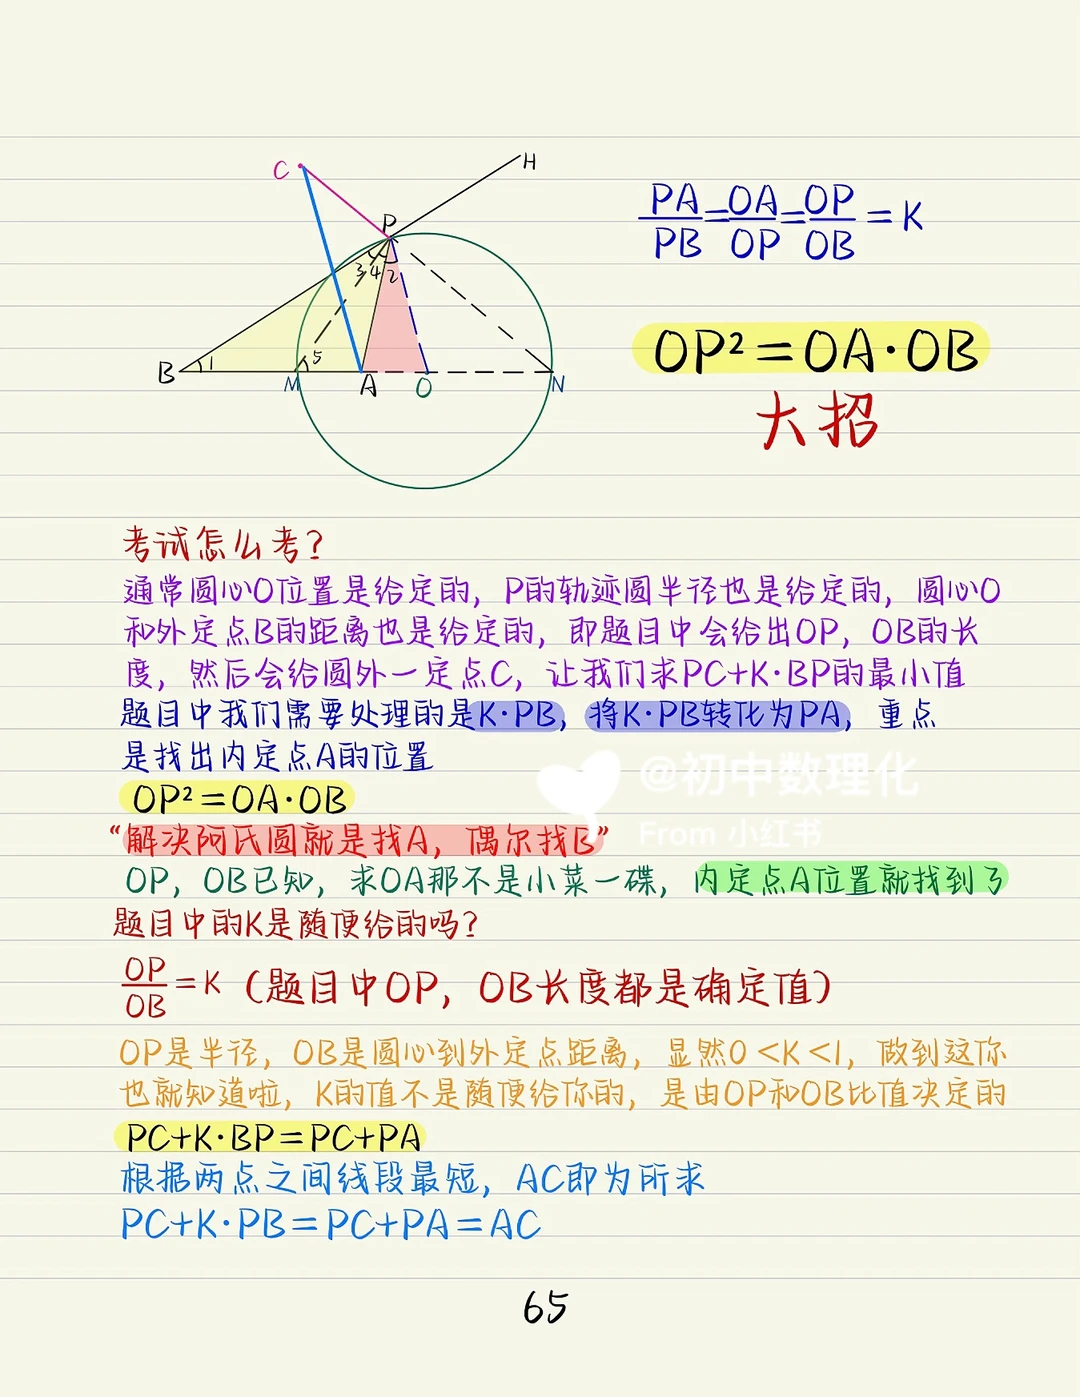 C
H
P
3 4 2
B 1
5
M A O N
PA/PB=OA/OP=OP/OB=K
OP²=OA·OB
大招
考试怎么考?
通常圆心O位置是给定的，P的轨迹圆半径也是给定的，圆心O
和外定点B的距离也是给定的，即题目中会给出OP，OB的长
度，然后会给圆外一定点C，让我们求PC+K·BP的最小值
题目中我们需要处理的是K·PB，将K·PB转化为PA，重点
是找出内定点A的位置
@初中数理化
OP²=OA·OB
“解决阿氏圆就是找A，偶尔找B”
From 小红书
OP，OB已知，求OA那不是小菜一碟，内定点A位置就找到了
题目中的K是随便给的吗?
OP/OB=K（题目中OP，OB长度都是确定值）
OP是半径，OB是圆心到外定点距离，显然0<K<1，做到这你
也就知道啦，K的值不是随便给你的，是由OP和OB比值决定的
PC+K·BP=PC+PA
根据两点之间线段最短，AC即为所求
PC+K·PB=PC+PA=AC
65